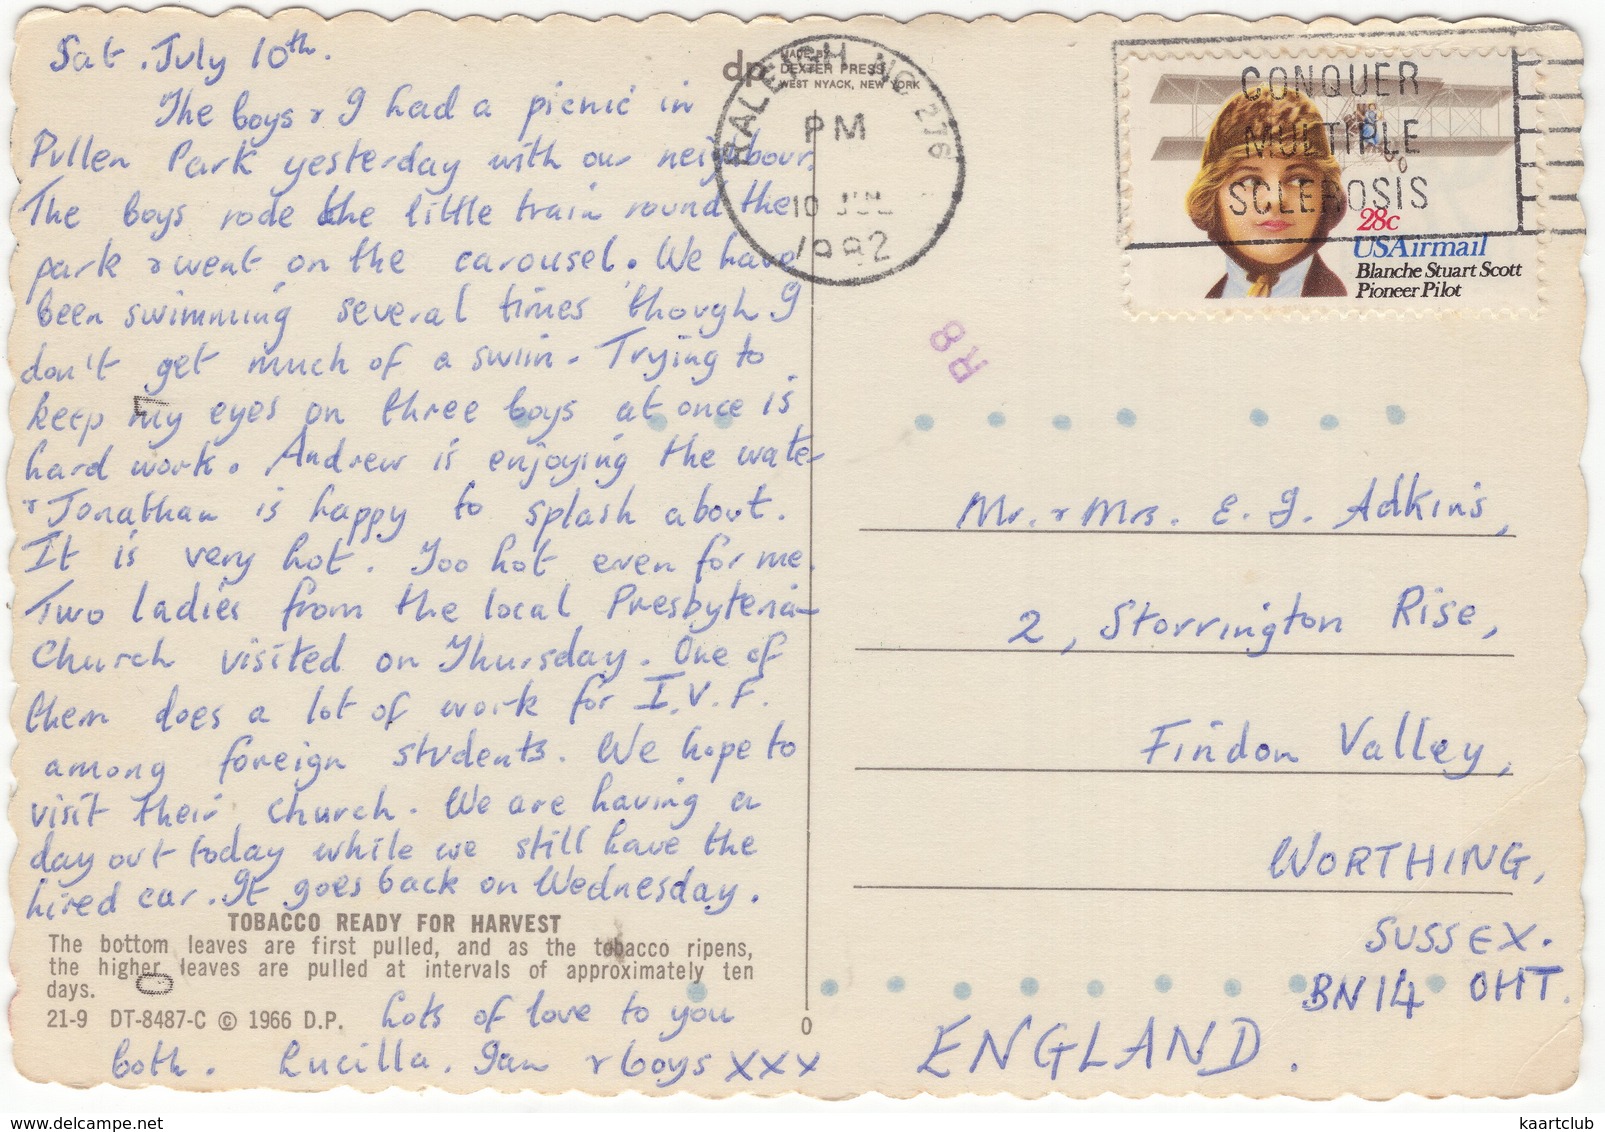 Sat. July 10th.
The boys & I had a picnic in
Pullen Park yesterday with our neighbour.
The boys rode the little train round the
park & went on the carousel. We have
been swimming several times though I
don't get much of a swim. Trying to
keep my eyes on three boys at once is
hard work. Andrew is enjoying the water
& Jonathan is happy to splash about.
It is very hot. Too hot even for me.
Two ladies from the local Presbyterian
Church visited on Thursday. One of
them does a lot of work for I.V.F.
among foreign students. We hope to
visit their church. We are having a
day out today while we still have the
hired car. It goes back on Wednesday.
TOBACCO READY FOR HARVEST
The bottom leaves are first pulled, and as the tobacco ripens,
the higher leaves are pulled at intervals of approximately ten
days.
21-9 DT-8487-C © 1966 D.P.
Lots of love to you
both. Lucilla. Ian & boys xxx
dp
MADE BY
DEXTER PRESS
WEST NYACK, NEW YORK
RALEIGH NC 276
PM
10 JUL
1982
CONQUER
MULTIPLE
SCLEROSIS
28c
USAirmail
Blanche Stuart Scott
Pioneer Pilot
R8
Mr. & Mrs. E. G. Adkins,
2, Storrington Rise,
Findon Valley,
WORTHING,
SUSSEX.
BN14 0HT.
ENGLAND.
0
www.delcampe.net
kaartclub